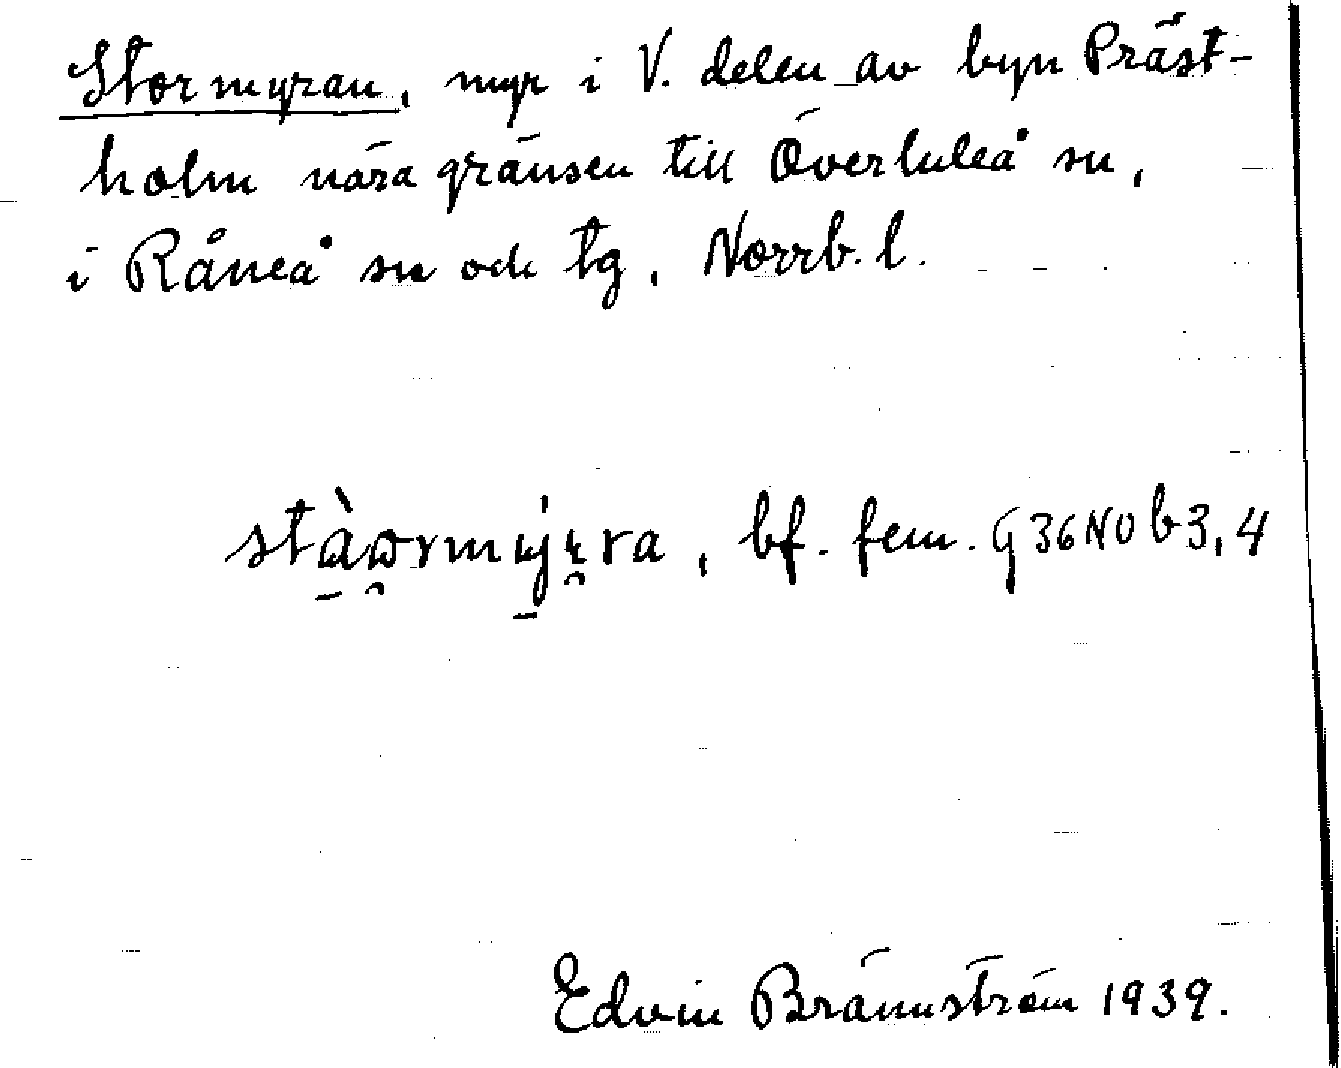 Stormyran, myr i V. delen av byn Präst-
holm nära gränsen till Överluleå sn,
i Råneå sn och tg, Norrb. l.
bf. fem. G 36 NO b 3, 4
Edvin Brännström 1939.